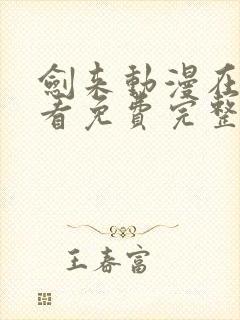 劍来動漫在
看免費完整
王春富